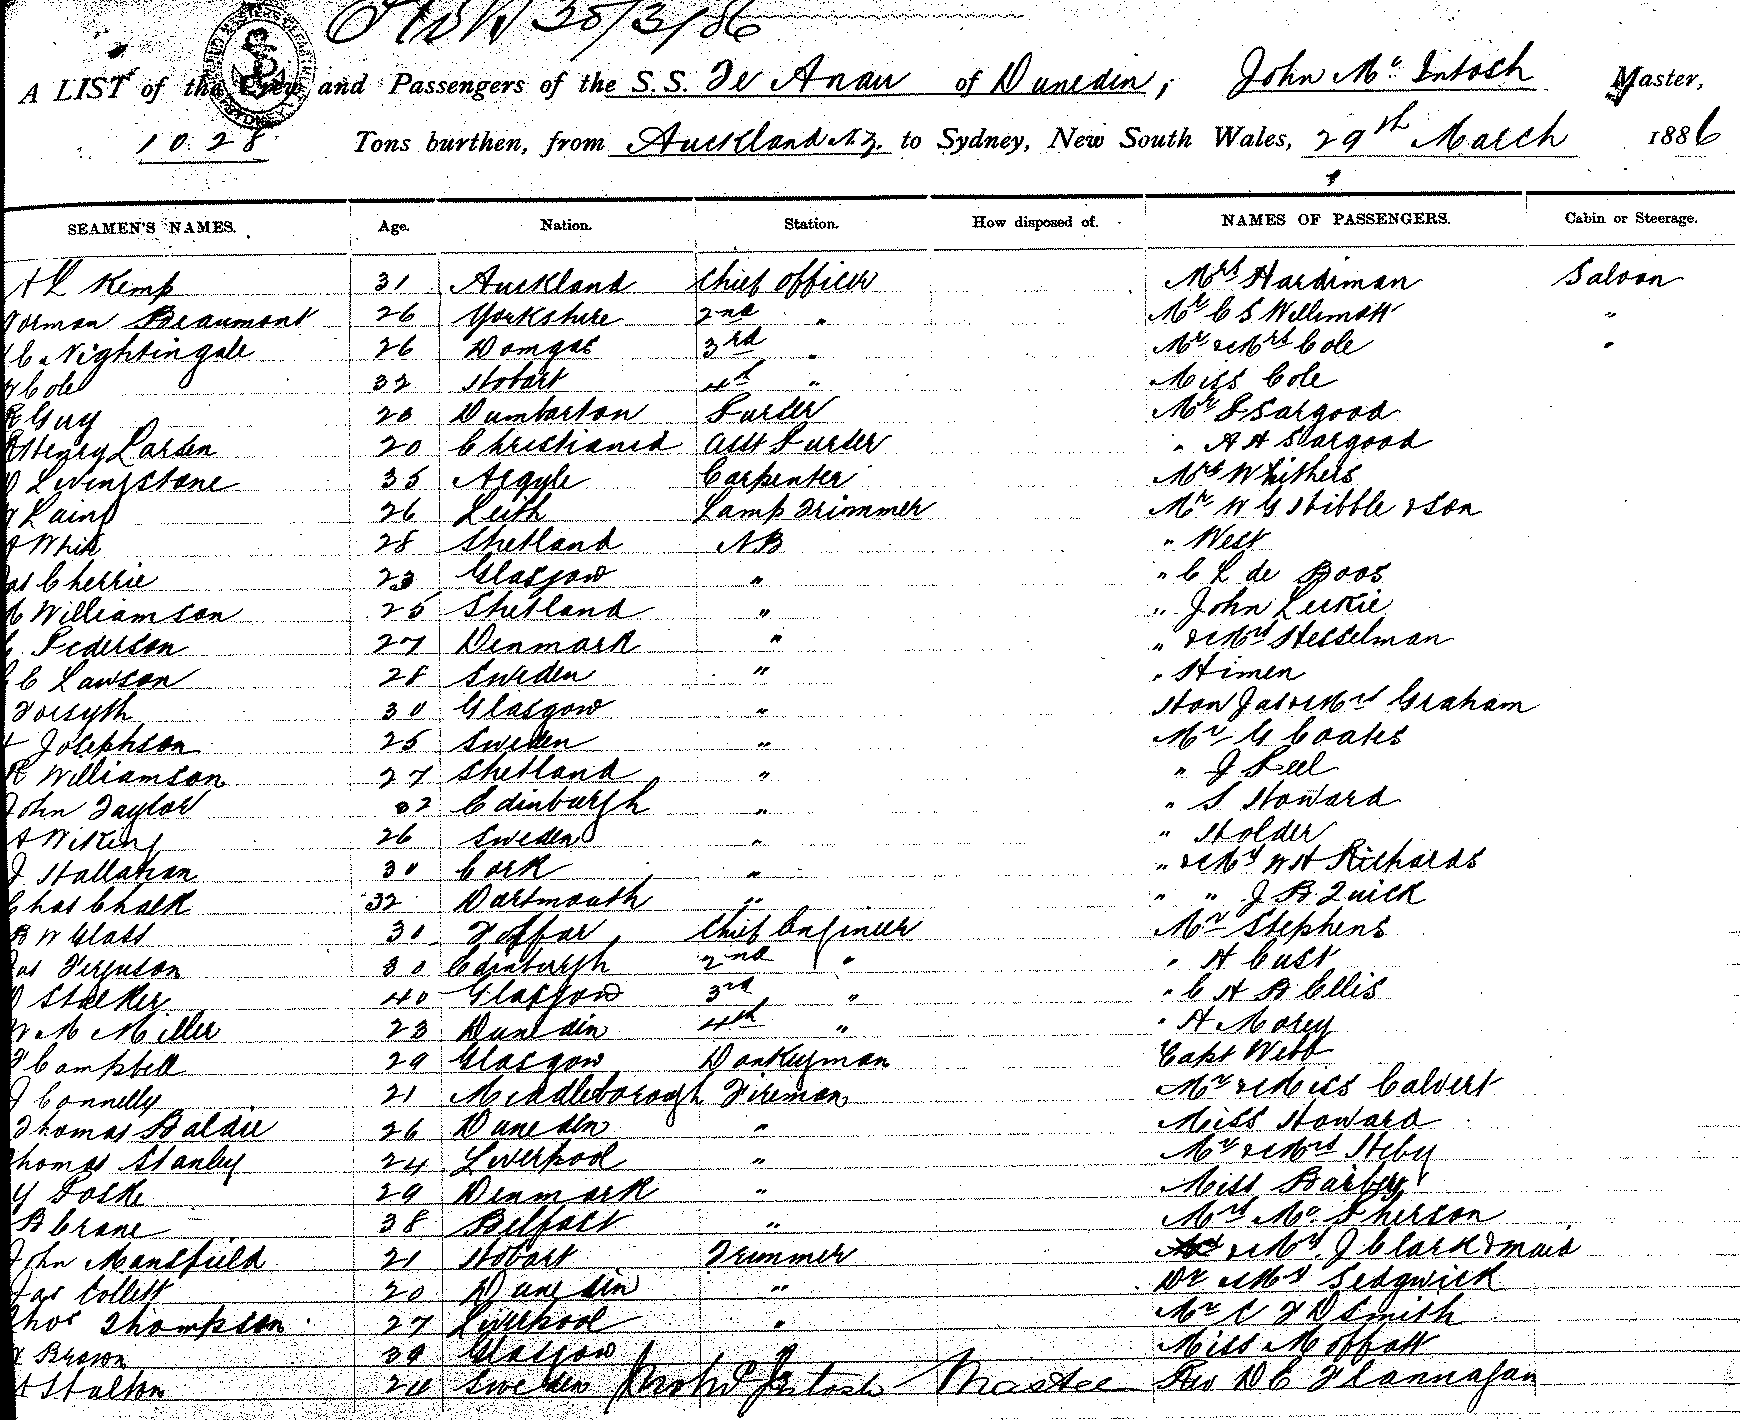 30/3/86
A LIST of the Crew and Passengers of the S.S. Te Anau of Dunedin, John Mc Intosh Master,
1028 Tons burthen, from Auckland N.Z. to Sydney, New South Wales, 29th March 1886
SEAMEN'S NAMES. Age. Nation. Station. How disposed of. NAMES OF PASSENGERS. Cabin or Steerage.
Kemp 31 Auckland Chief Officer Mrs Hardiman Saloon
Norman Beaumont 26 Yorkshire 2nd " Mr C S Willimott "
C Nightingale 26 3rd " Mr & Mrs Cole "
Cole 32 Hobart 4th " Miss Cole
R Guy 20 Dumbarton Purser Mr F Sargood
Henry Larsen 20 Christiania Asst Purser " A H Sargood
Livingstone 35 Argyle Carpenter Mrs Whithers
Laing 26 Leith Lamp Trimmer Mr W G Hibble & Son
28 Shetland AB " West
Jas Cherrie 23 Glasgow " " C L de Boos
Williamson 25 Shetland " " John Leckie
Pederson 27 Denmark " " & Mrs Hesselman
C Lawson 28 Sweden " " Himen
Forsyth 30 Glasgow " Hon Jas & Mrs Graham
Josephson 25 Sweden " Mr G Coates
R Williamson 27 Shetland " " J Peel
John Taylor 32 Edinburgh " " S Howard
A Wiking 26 Sweden " " Holder
J Hallahan 30 Cork " " & Mrs W H Richards
Chas Chalk 32 Dartmouth " " " J B Quick
B W Glass 30 Chief Engineer Mr Stephens
Jas Ferguson 30 Edinburgh 2nd " " H Cust
Stalker 40 Glasgow 3rd " " C H B Ellis
W M Miller 23 Dunedin 4th " " A Morey
Campbell 29 Glasgow Donkeyman Capt Webb
J Connelly 21 Middleborough Fireman Mr & Miss Calvert
Thomas Baldie 26 Dunedin " Miss Howard
Thomas Stanley 24 Liverpool " Mr & Mrs Heby
Poske 29 Denmark " Miss Barber
B Crane 38 Belfast " Mrs Mc Pherson
John Mansfield 21 Hobart Trimmer & Mrs J Clark & maid
Jas Collett 20 Dunedin " Dr & Mrs Sedgwick
Thos Thompson 27 Liverpool " Mr C F D Smith
Brown 39 Glasgow " Miss Moffatt
Stalton 20 Sweden John McIntosh Master Rev D C Flannagan